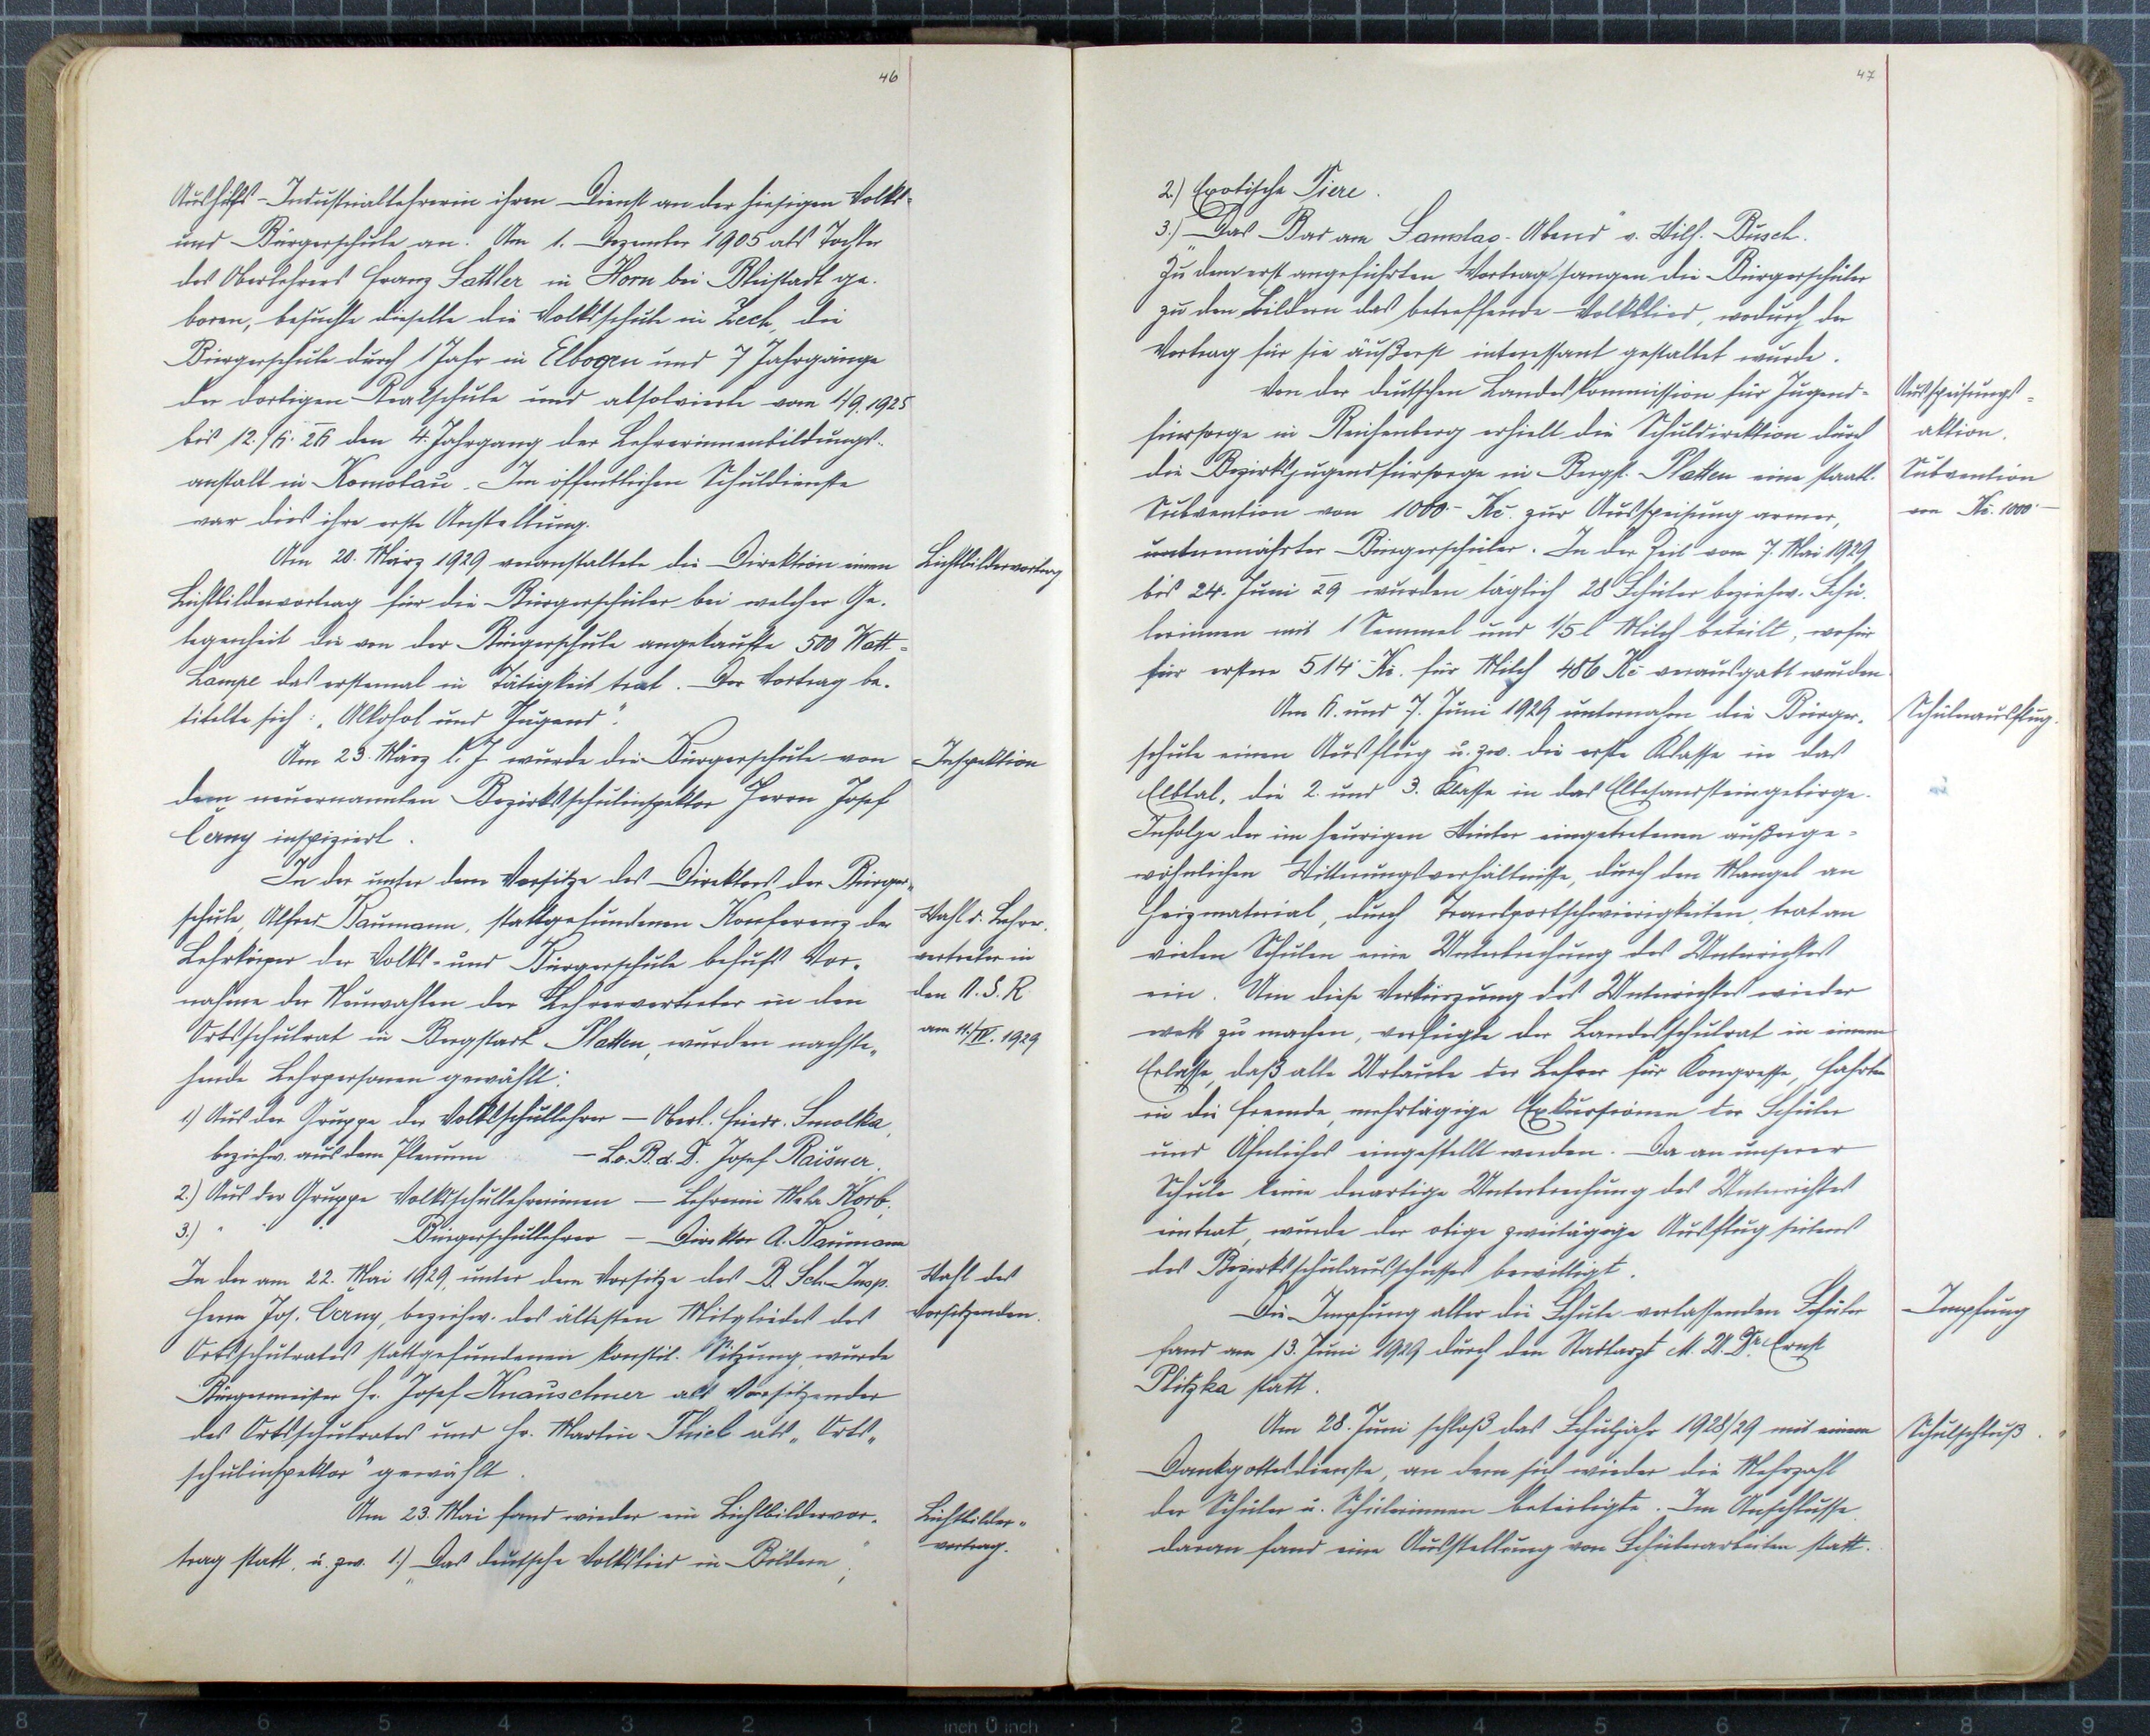 46
Aushilfs-Industriallehrerin ihren Dienst an der hiesigen Volks-
und Bürgerschule an. Am 1. Dezember 1905 als Tochter
des Oberlehrers Franz Sattler in Horn bei Bleistadt ge-
boren, besuchte dieselbe die Volksschule in Zech, die
Bürgerschule durch 1 Jahr in Elbogen und 7 Jahrgänge
der dortigen Realschule und absolvierte vom 1/9. 1925
bis 12./6. 26 den 4. Jahrgang der Lehrerinnenbildungs-
anstalt in Komotau. Im öffentlichen Schuldienste
war dies ihre erste Anstellung.
Am 20. März 1929 veranstaltete die Direktion einen
Lichtbildervortrag
Lichtbildervortrag für die Bürgerschüler bei welcher Ge-
legenheit die von der Bürgerschule angekaufte 500 Watt-
Lampe das erstemal in Tätigkeit trat. Der Vortrag be-
titelte sich: „Alkohol und Jugend".
Am 23. März l. J. wurde die Bürgerschule von
Inspektion
dem neuernannten Bezirksschulinspektor Herrn Josef
Černy inspiziert.
In der unter dem Vorsitze des Direktors der Bürger-
schule, Alfred Baumann, stattgefundenen Konferenz der
Wahl d. Lehrer-
Lehrkörper der Volks- und Bürgerschule behufs Vor-
vertreter in
nahme der Neuwahlen der Lehrervertreter in den
den O.S.R.
Ortsschulrat in Bergstadt Platten, wurden nachste-
am 11./IV. 1929
hende Lehrpersonen gewählt:
1.) Aus der Gruppe der Volksschullehrer — Oberl. Friedr. Smolka,
beziehw. aus dem Plenum — Lr. B. d. D. Josef Raisner.
2.) Aus der Gruppe Volksschullehrerinnen — Lehrerin Korb.
3.) " " Bürgerschullehrer — Direktor A. Baumann
In der am 22. Mai 1929, unter dem Vorsitze des B. Sch-Insp.
Wahl des
Herrn Jos. Černy, beziehw. des ältesten Mitgliedes des
Vorsitzenden.
Ortsschulrates stattgefundenen konstit. Sitzung wurde
Bürgermeister H. Josef Knauschner als Vorsitzender
des Ortsschulrates und Hr. Martin Thiel als „Orts-
schulinspektor" gewählt.
Am 23. Mai fand wieder ein Lichtbildervor-
Lichtbilder-
trag statt, u. zw. 1.) „Das deutsche Volkslied in Bildern";
vortrag.
47
2.) Exotische Tiere.
3.) „Das Bad am Samstag-Abend" v. Wilh. Busch.
Zu dem erst angeführten Vortrag sangen die Bürgerschüler
zu den Bildern das betreffende Volkslied, wodurch der
Vortrag für sie äußerst interessant gestaltet wurde.
Von der deutschen Landeskommission für Jugend-
Ausspeisungs-
fürsorge in Reichenberg erhielt die Schuldirektion durch
aktion.
die Bezirksjugendfürsorge in Bergst. Platten eine staatl.
Subvention
Subvention von 1000.- Kč. zur Ausspeisung armer,
von Kč. 1000.—
unterernährter Bürgerschüler. In der Zeit vom 7. Mai 1929
bis 24. Juni 29 wurden täglich 28 Schüler beziehw. Schü-
lerinnen mit 1 Semmel und 1/5 l Milch beteilt, wofür
für erstere 514.- Kč. für Milch 486 Kč verausgabt wurden.
Am 6. und 7. Juni 1929 unternahm die Bürger-
Schulausflug.
schule einen Ausflug u. zw. die erste Klasse in das
Elbtal, die 2. und 3. Klasse in das Elbesandsteingebirge.
Infolge der im heurigen Winter eingetretenen außerge-
wöhnlichen Witterungsverhältnisse, durch den Mangel an
Heizmaterial, durch Transportschwierigkeiten, trat an
vielen Schulen eine Unterbrechung des Unterrichtes
ein. Um diese Verkürzung des Unterrichtes wieder
wett zu machen, verfügte der Landesschulrat in einem
Erlasse, daß alle Urlaube der Lehrer für Kongresse, Fahrten
in die Fremde, mehrtägige Exkursionen der Schüler
und Ähnliches eingestellt werden. Da an unserer
Schule keine derartige Unterbrechung des Unterrichtes
eintrat, wurde der obige zweitägige Ausflug seitens
des Bezirksschulausschusses bewilligt.
Die Impfung aller die Schule verlassenden Schüler
Impfung
fand am 13. Juni 1929 durch den Stadtarzt M. U. Dr. Ernst
Plitzka statt.
Am 28. Juni schloß das Schuljahr 1928/29 mit einem
Schulschluß.
Dankgottesdienste, an dem sich wieder die Mehrzahl
der Schüler u. Schülerinnen beteiligte. Im Anschlusse
daran fand eine Ausstellung von Schülerarbeiten statt.
8 7 6 5 4 3 2 1 inch 0 inch 1 2 3 4 5 6 7 8 9